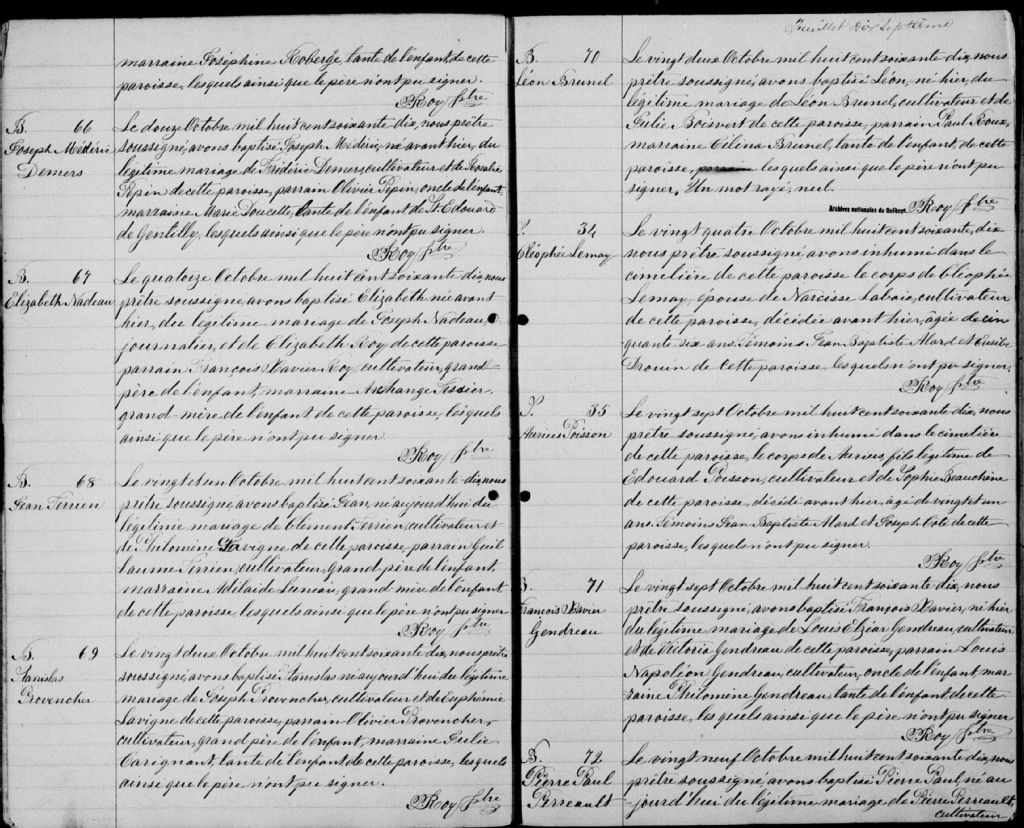 marraine Joséphine Roberge, tante de l'enfant, de cette
paroisse, lesquels ainsi que le père n'ont pu signer.
Roy ptre
B. 66
Joseph Médéric
Demers
Le douze Octobre mil huit cent soixante dix, nous prêtre
soussigné, avons baptisé Joseph Médéric, né avant hier, du
légitime mariage de Frédéric Demers, cultivateur et de Rosalie
Pepin de cette paroisse, parrain Olivier Pepin, oncle de l'enfant,
marraine Marie Doucette, tante de l'enfant de St. Edouard
de Gentilly, lesquels ainsi que le père n'ont pu signer.
Roy ptre
B. 67
Elizabeth Nadeau
Le quatorze Octobre mil huit cent soixante dix, nous
prêtre soussigné, avons baptisé Elizabeth née avant
hier, du légitime mariage de Joseph Nadeau,
journalier, et de Elizabeth Roy de cette paroisse
parrain François Xavier Roy, cultivateur, grand-
père de l'enfant, marraine Archange Tessier,
grand-mère de l'enfant de cette paroisse, lesquels
ainsi que le père n'ont pu signer.
Roy ptre
B. 68
Jean Terrien
Le vingt et un Octobre mil huit cent soixante dix, nous
prêtre soussigné, avons baptisé Jean, né aujourd'hui du
légitime mariage de Clément Terrien, cultivateur et
de Philomène Lavigne de cette paroisse, parrain Guil
laume Terrien, cultivateur, grand père de l'enfant
marraine Adelaide Juneau, grand mère de l'enfant
de cette paroisse lesquels ainsi que le père n'ont pu signer
Roy ptre
B. 69
Stanislas
Provencher
Le vingt deux Octobre mil huit cent soixante dix, nous prêtre
soussigné, avons baptisé Stanislas né aujourd'hui du légitime
mariage de Joseph Provencher, cultivateur et de Euphémie
Lavigne de cette paroisse, parrain Olivier Provencher,
cultivateur, grand père de l'enfant, marraine Julie
Carignant, tante de l'enfant de cette paroisse, lesquels
ainsi que le père n'ont pu signer.
Roy ptre
Feuillet dix septième
B. 70
Léon Brunel
Le vingt deux Octobre mil huit cent soixante dix, nous
prêtre soussigné, avons baptisé Léon, né hier, du
légitime mariage de Léon Brunel, cultivateur et de
Julie Boisvert de cette paroisse, parrain Paul Roux,
marraine Célina Brunel, tante de l'enfant, de cette
paroisse, lesquels ainsi que le père n'ont pu
signer. Un mot rayé, nul.
Archives nationales du Québec
Roy ptre
S. 34
Cléophée Lemay
Le vingt quatre Octobre mil huit cent soixante, dix
nous prêtre soussigné avons inhumé dans le
cimetière de cette paroisse le corps de Cléophée
Lemay, épouse de Narcisse Labois, cultivateur
de cette paroisse, décédée avant hier, agée de cin
quante six ans. Témoins Jean Baptiste Alard et Eusèbe
Drouin de cette paroisse, lesquels n'ont pu signer.
Roy ptre
S. 35
Aurius Poisson
Le vingt sept Octobre mil huit cent soixante dix, nous
prêtre soussigné, avons inhumé dans le cimetière
de cette paroisse, le corps de Aurius, fils légitime de
Edouard Poisson, cultivateur et de Sophie Beauchêne
de cette paroisse, décédé avant hier, agé de vingt et un
ans. Témoins Jean Baptiste Alard et Joseph Coté de cette
paroisse, lesquels n'ont pu signer.
Roy ptre
B. 71
François Xavier
Gendreau
Le vingt sept Octobre mil huit cent soixante dix, nous
prêtre soussigné, avons baptisé François Xavier, né hier
du légitime mariage de Louis Elzéar Gendreau, cultivateur
et de Victoria Gendreau de cette paroisse, parrain Louis
Napoléon Gendreau, cultivateur, oncle de l'enfant, mar
raine Philomène Gendreau, tante de l'enfant de cette
paroisse, lesquels ainsi que le père n'ont pu signer
Roy ptre
B. 72
Pierre Paul
Perreault
Le vingt neuf Octobre mil huit cent soixante dix, nous
prêtre soussigné avons baptisé Pierre Paul né au
jourd'hui du légitime mariage de Pierre Perreault,
cultivateur,